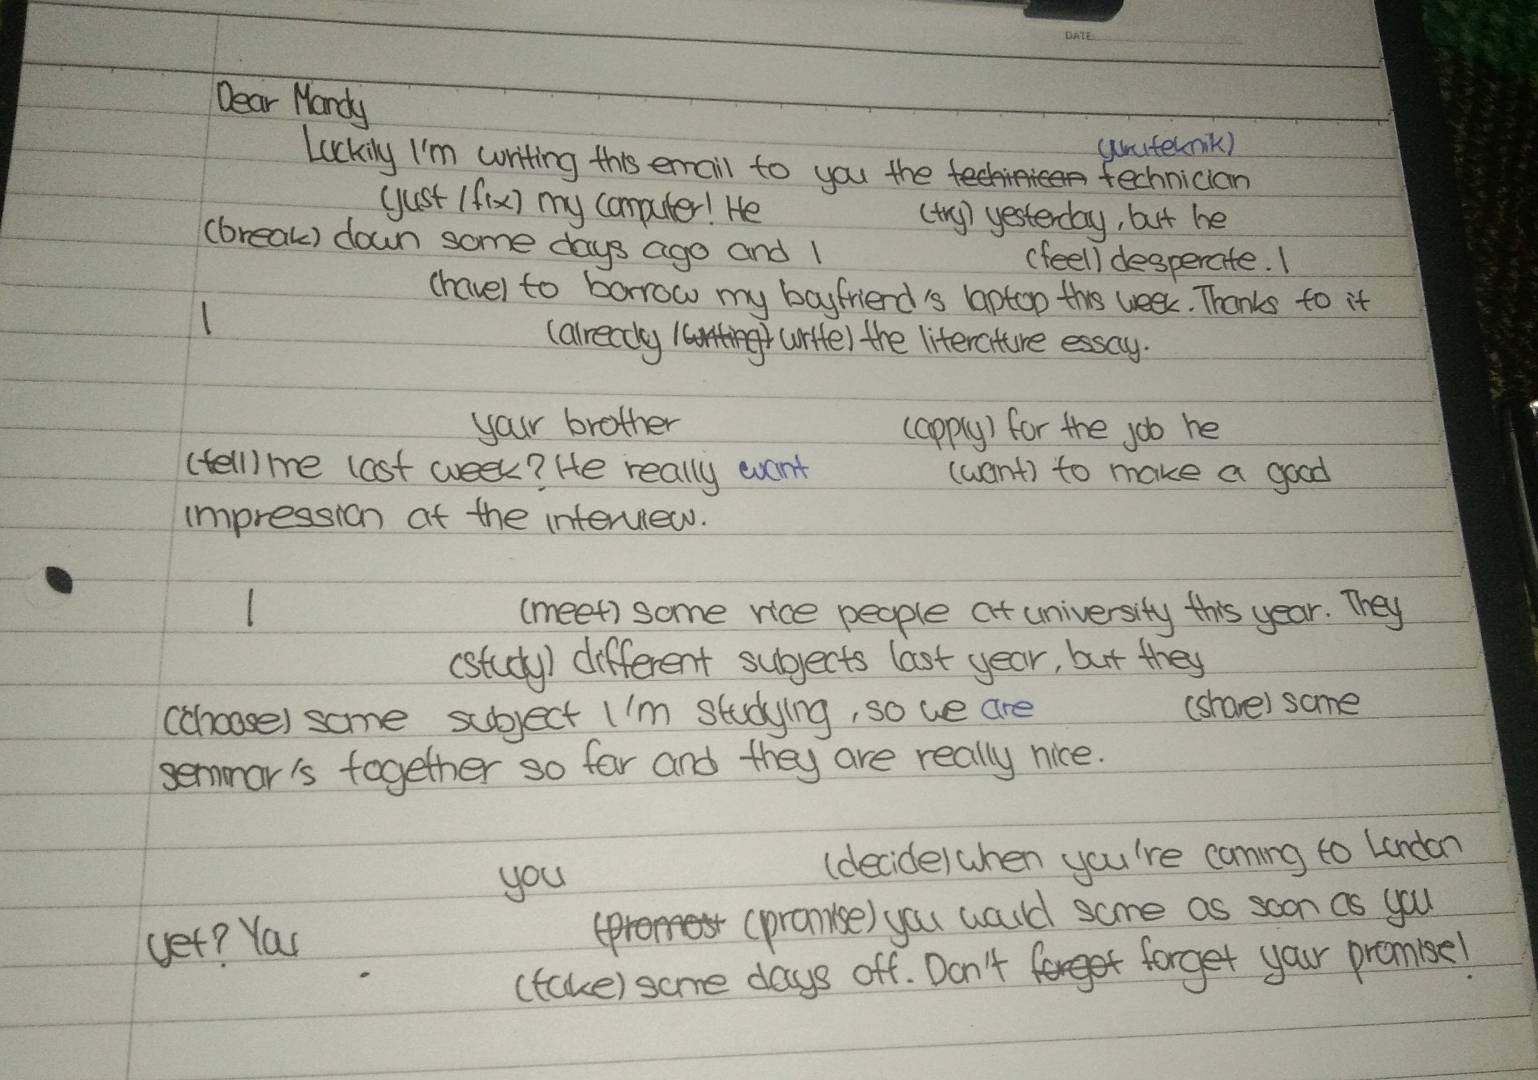 DATE
Dear Mandy
(juruteknik)
Luckily I'm writing this email to you the techinicen technician
(just / fix) my computer! He (try) yesterday, but he
(break) down some days ago and I (feel) desperate. I
(have) to borrow my boyfriend's laptop this week. Thanks to it
I (already / (writing) write) the literature essay.
your brother (apply) for the job he
(tell) me last week? He really want (want) to make a good
impression at the interview.
I (meet) some nice people at university this year. They
(study) different subjects last year, but they
(choose) some subject I'm studying, so we are (share) some
seminar's together so far and they are really nice.
you (decide) when you're coming to London
yet? You (promest (promise) you would some as soon as you
(take) some days off. Don't forget forget your promise!